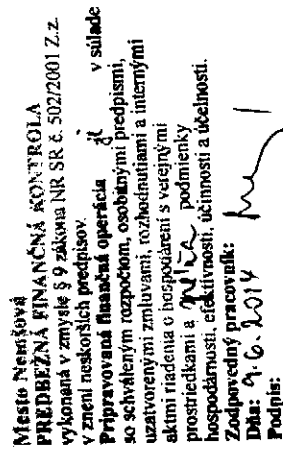 Mesto Nemšová
PREDBEŽNÁ FINANČNÁ KONTROLA
vykonaná v zmysle § 9 zákona NR SR č. 502/2001 Z.z.
v znení neskorších predpisov.
Pripravovaná finančná operácia je v súlade
so schváleným rozpočtom, osobitnými predpismi,
uzatvorenými zmluvami, rozhodnutiami a internými
aktmi riadenia o hospodárení s verejnými
prostriedkami a spĺňa podmienky
hospodárnosti, efektívnosti, účinnosti a účelnosti.
Zodpovedný pracovník:
Dňa: 9.6.2014
Podpis: